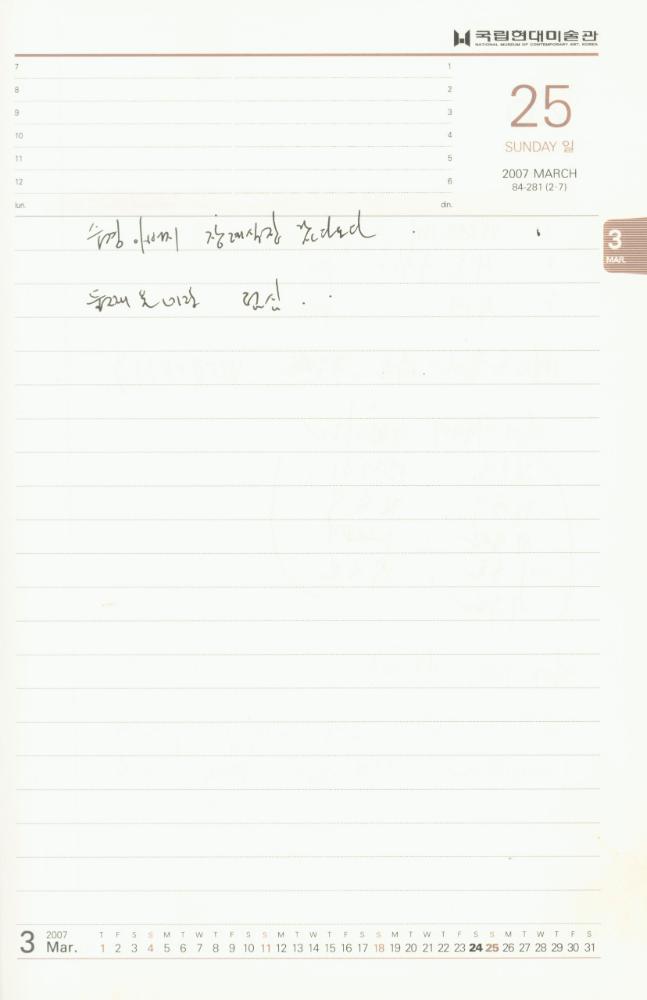 국립현대미술관
NATIONAL MUSEUM OF CONTEMPORARY ART, KOREA
7 1
8 2
9 3
10 4
11 5
12 6
lun. din.
25
SUNDAY 일
2007 MARCH
84-281 (2-7)
3
MAR.
장례식장
둘째
3 2007 Mar.
T F S S M T W T F S S M T W T F S S M T W T F S S M T W T F S
1 2 3 4 5 6 7 8 9 10 11 12 13 14 15 16 17 18 19 20 21 22 23 24 25 26 27 28 29 30 31